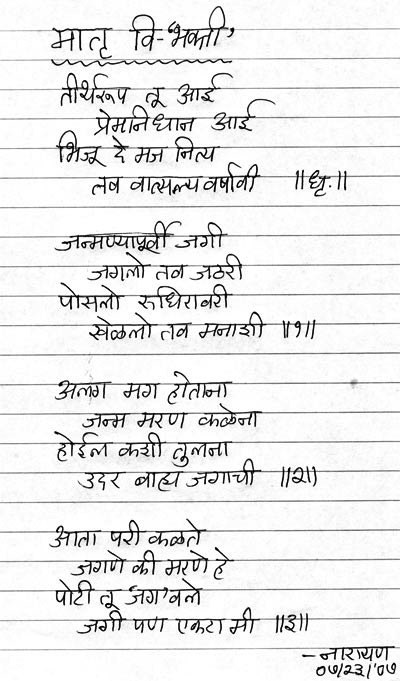 मातृ वि-'भक्ती'
तीर्थरूप तू आई
प्रेमनिधान आई
भिजू दे मज नित्य
तव वात्सल्यवर्षावी ॥धृ.॥
जन्मण्यापूर्वी जगी
जगलो तव जठरी
पोसलो रुधिरावरी
खेळलो तव मनाशी ॥१॥
अलग मग होताना
जन्म मरण कळेना
होईल कशी तुलना
उदर बाह्य जगाची ॥२॥
आता परी कळते
जगणे की मरणे हे
पोटी तू 'जग'वले
जगी पण एकटा मी ॥३॥
–नारायण
०७/२३/'०७